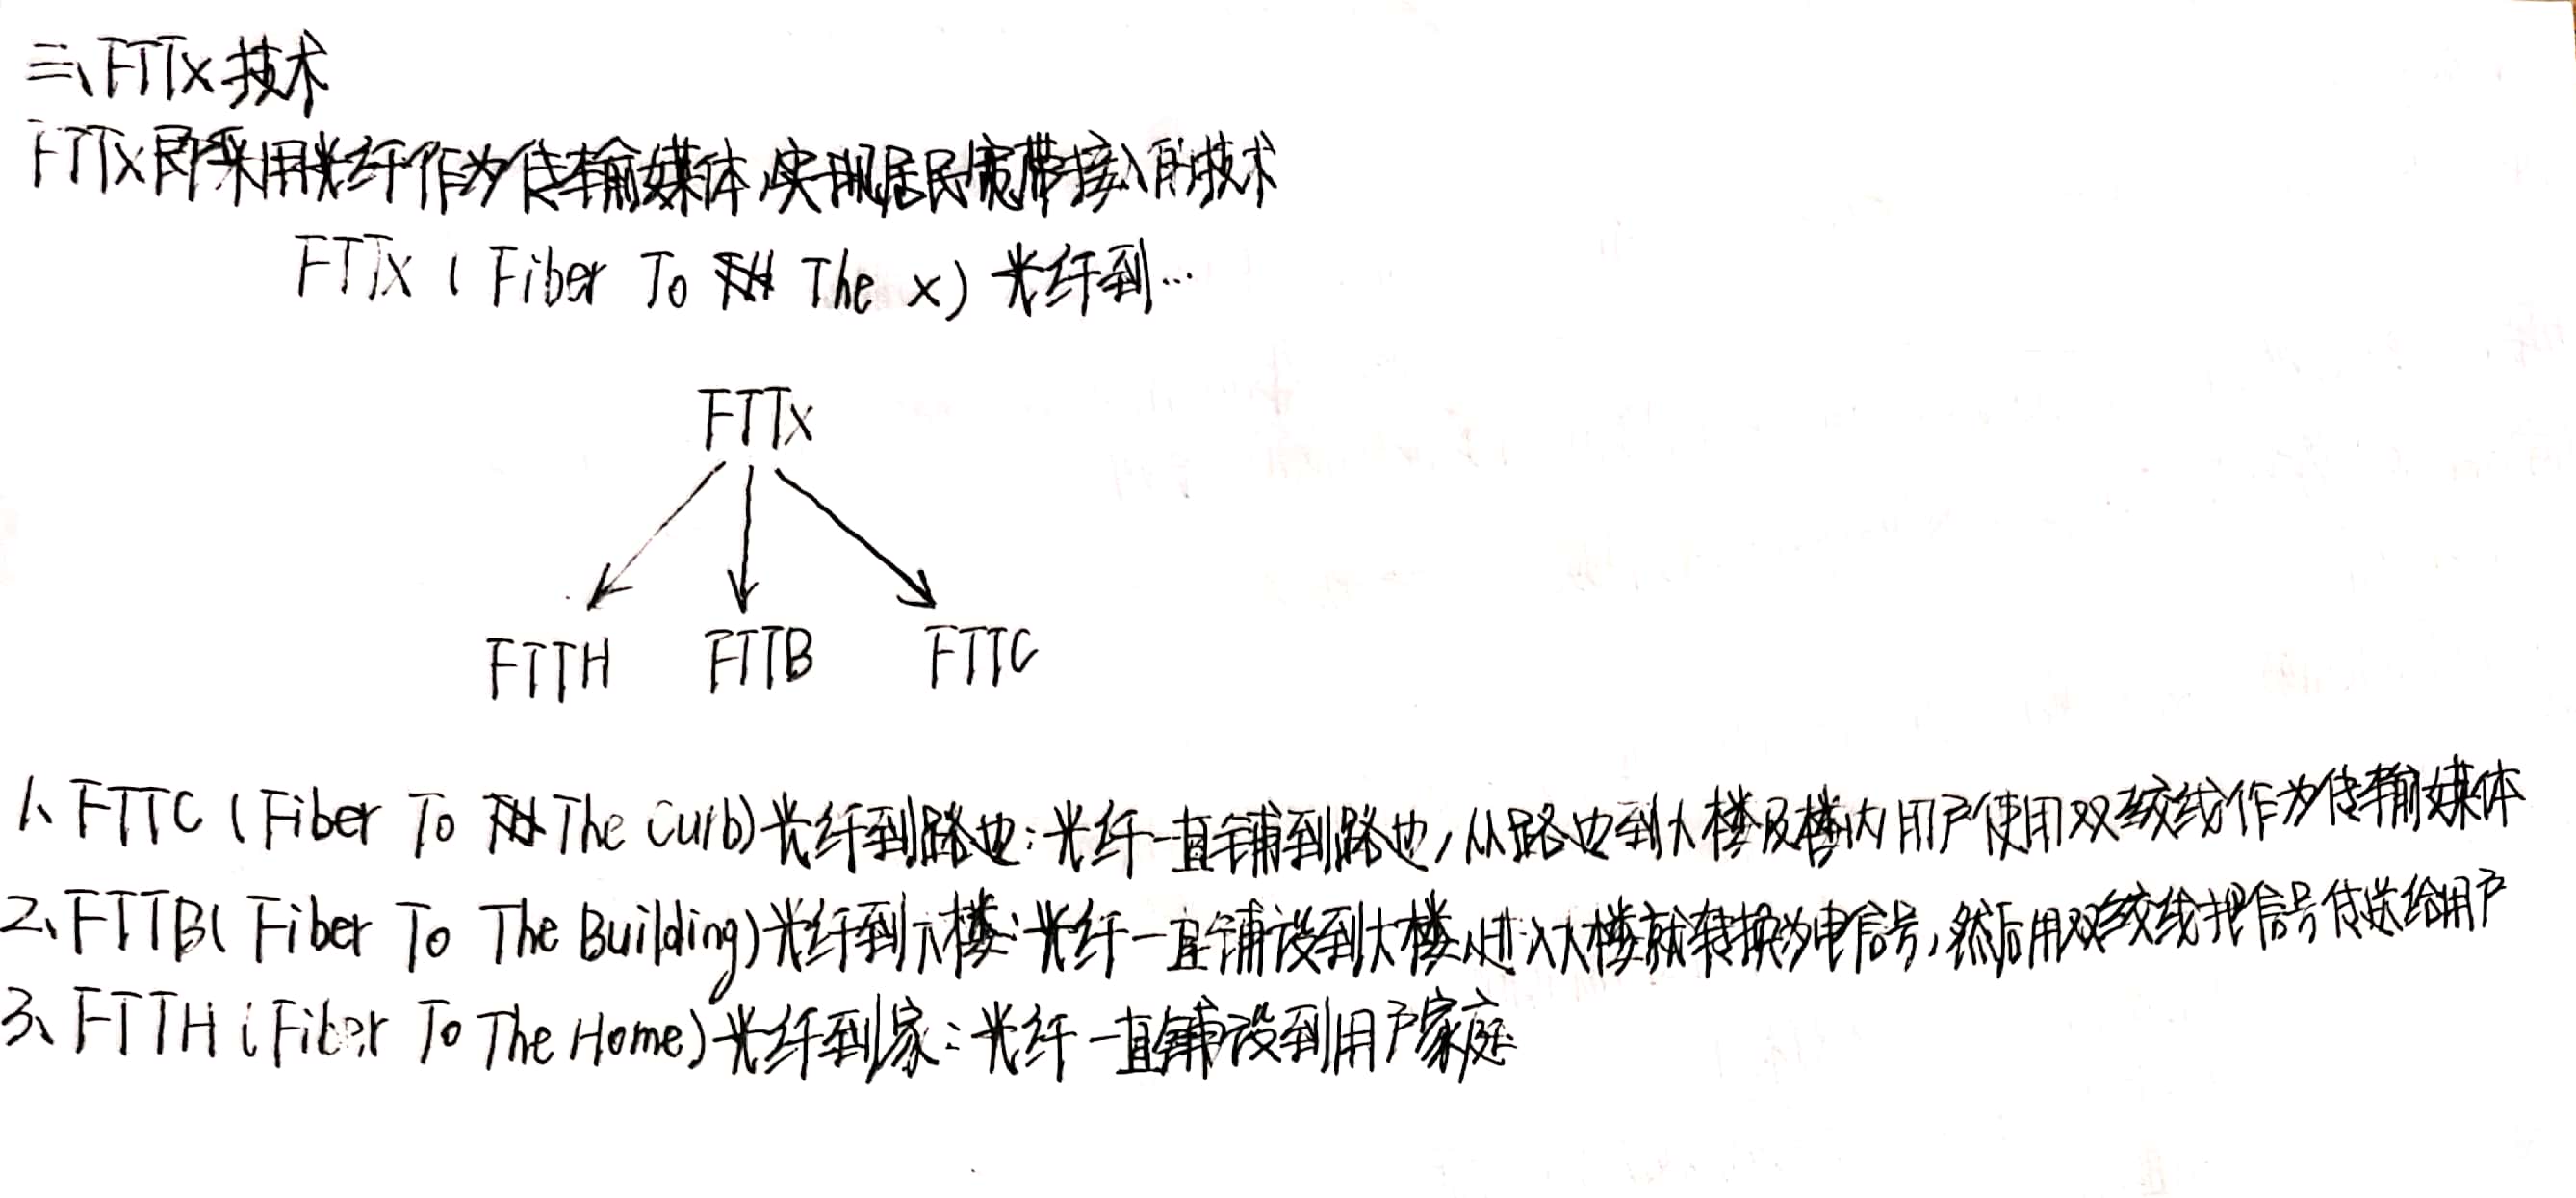 三、FTTx技术
FTTx即采用光纤作为传输媒体,实现居民宽带接入的技术
FTTx ( Fiber To The x) 光纤到…
FTTx
FTTH FTTB FTTC
1、FTTC (Fiber To The Curb)光纤到路边:光纤一直铺到路边,从路边到大楼及楼内用户使用双绞线作为传输媒体
2、FTTB( Fiber To The Building)光纤到大楼:光纤一直铺设到大楼,进入大楼就转换为电信号,然后用双绞线把信号传送给用户
3、FTTH (Fiber To The Home)光纤到家:光纤一直铺设到用户家庭